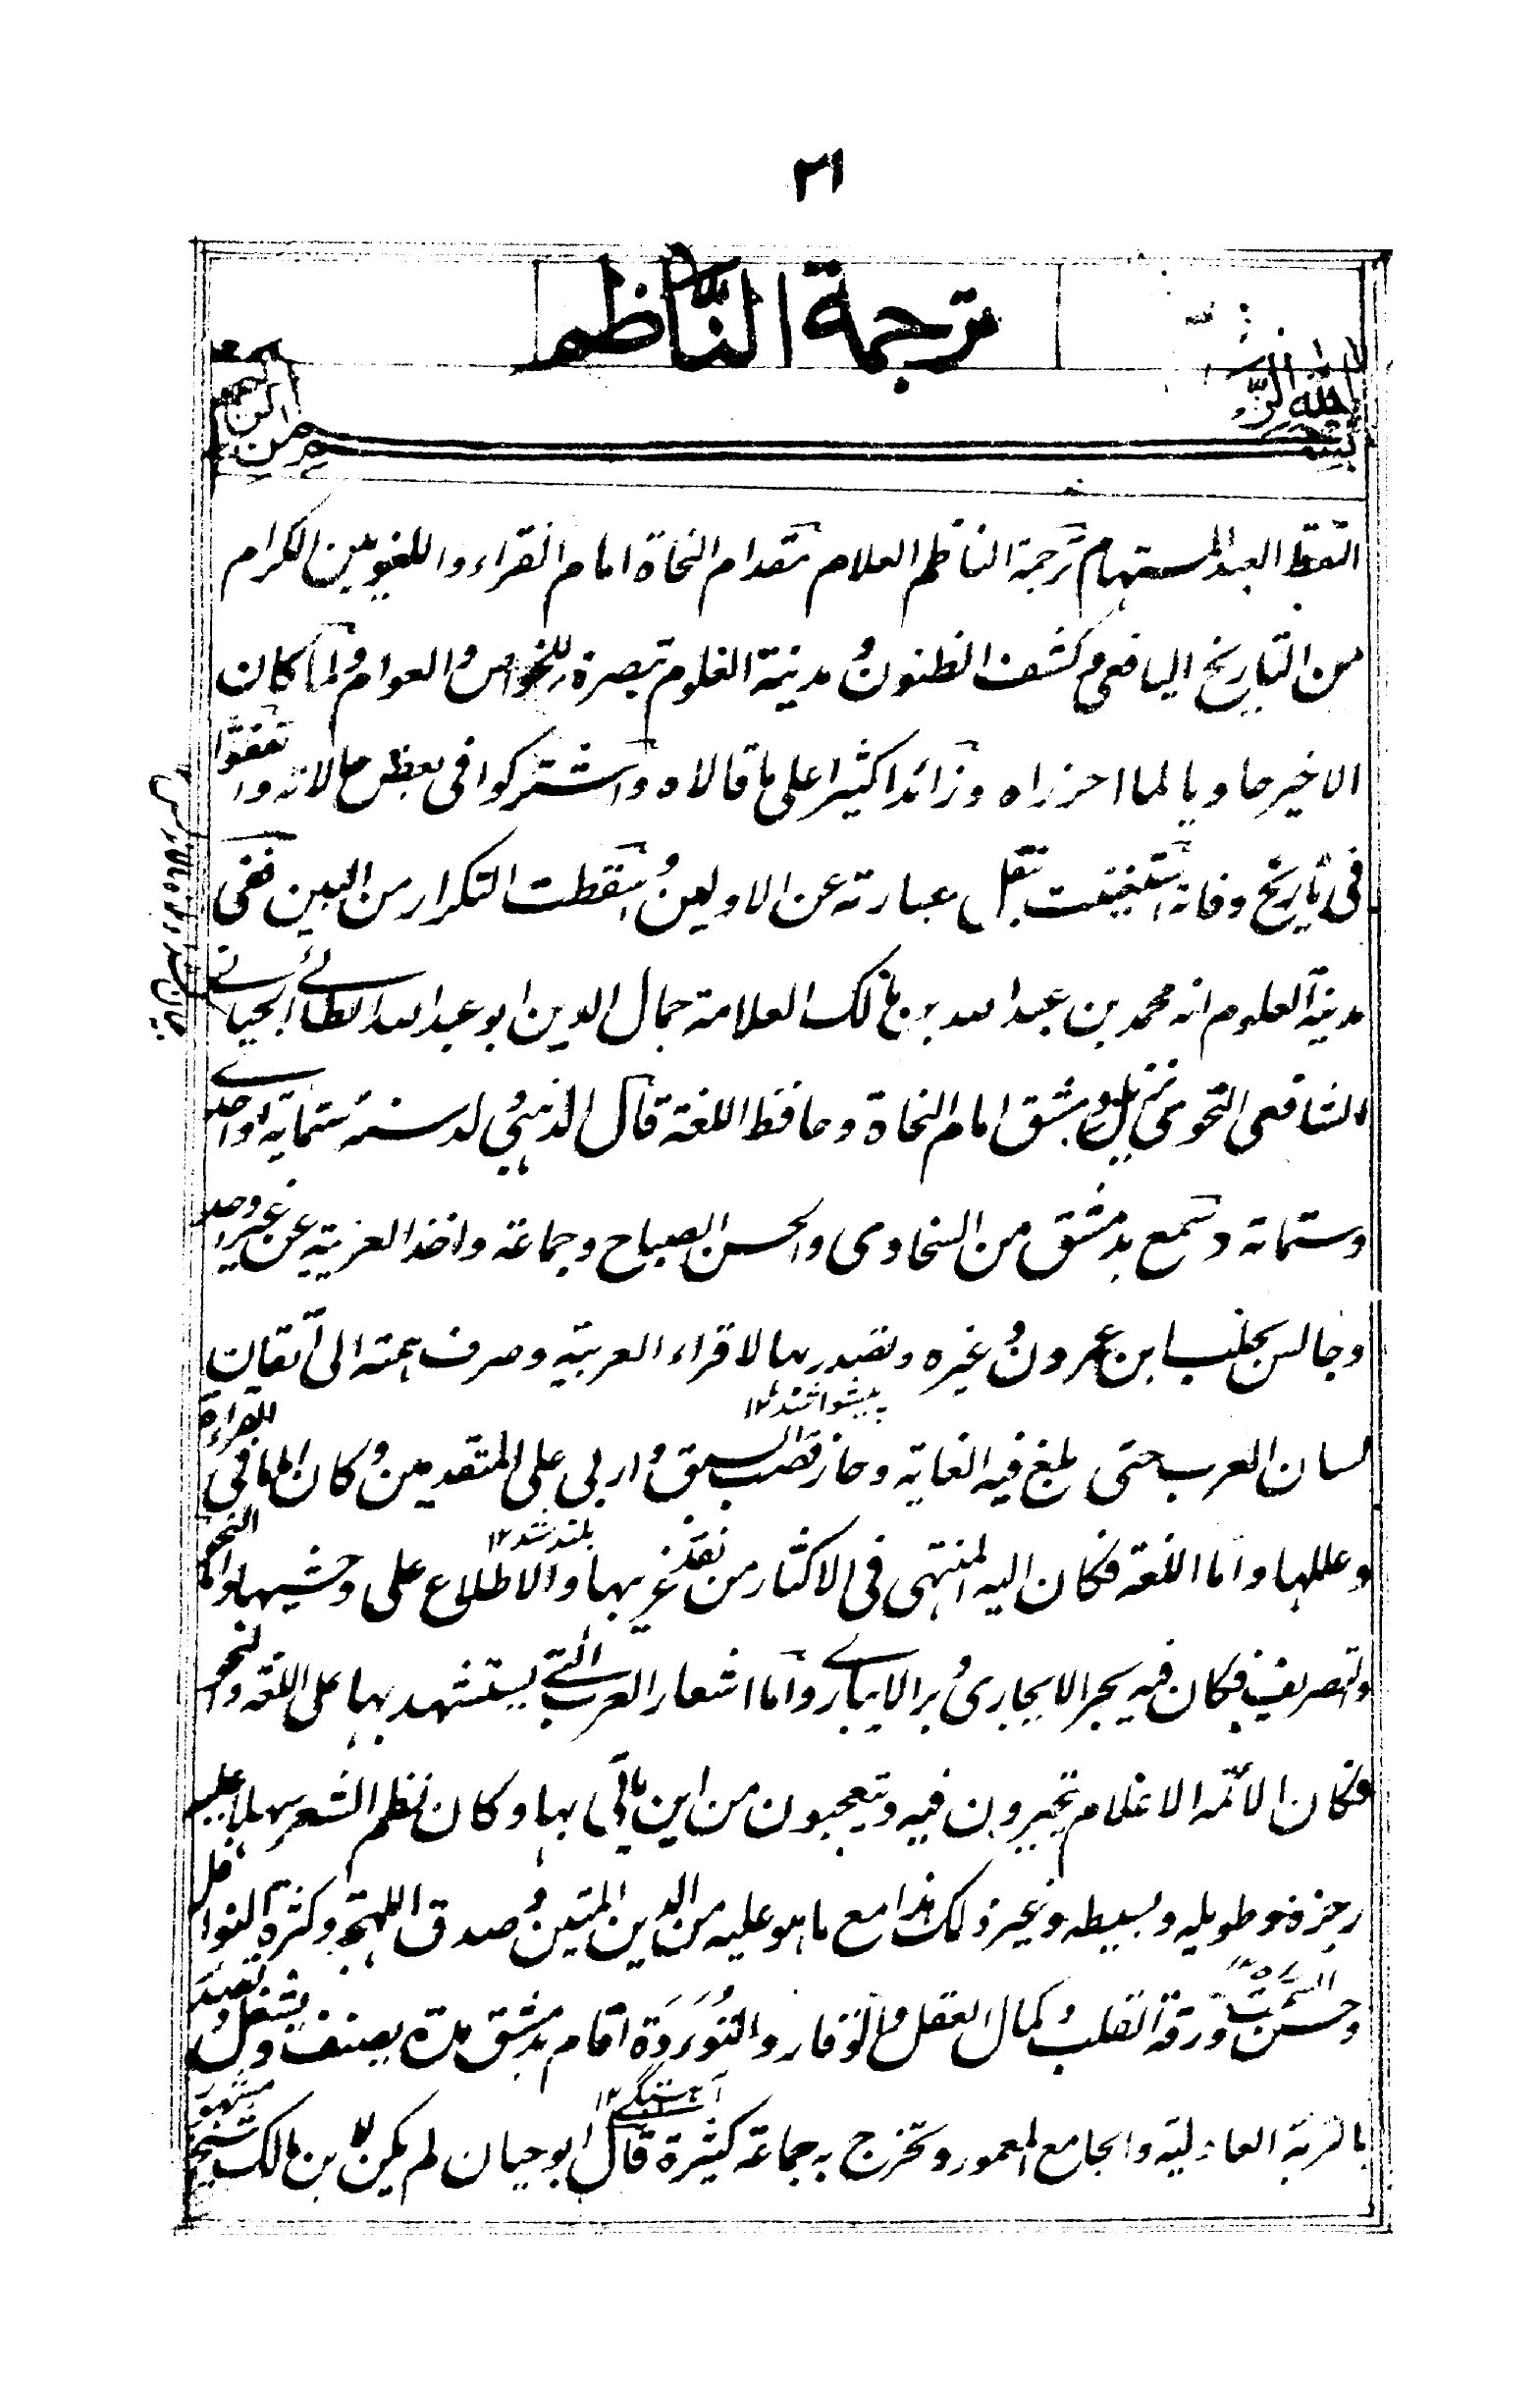 ٢١
ترجمة الناظم
بسم الله الرحمن الرحيم
التقط العبد المستهام ترجمة الناظم العلام مقدام النحاة امام القراء واللغويين الكرام
من التاريخ اليافعي و كشف الظنون و مدينة العلوم تبصرة للخواص والعوام ولما كان
الاخير حاويا لما احرزاه وزائدا كثيرا على ما قالاه واشتركوا في بعض حالاته واتفقوا
في تاريخ وفاته استغنيت بنقل عبارته عن الاولين و اسقطت التكرار من البين ففي
مدينة العلوم انه محمد بن عبد الله بن مالك العلامة جمال الدين ابو عبد الله الطائي الجياني
الشافعي النحوي نزيل دمشق امام النحاة وحافظ اللغة قال الذهبي ولد سنة ستماية او احدى
وستماية وسمع بدمشق من السخاوي والحسن الصباح وجماعة واخذ العربية عن غير واحد
وجالس بحلب ابن عمرون و غيره وتصدر بها لاقراء العربية وصرف همته الى اتقان
پيشوا شد ١٢
لسان العرب حتى بلغ فيه الغاية وحاز قصب السبق و اربى على المتقدمين و كان اماما في القراءة
بلند شد ١٢
وعللها واما اللغة فكان اليه المنتهى في الاكثار من نقل غريبها والاطلاع على وحشيها واما النحو
والتصريف فكان فيه بحر الايجاري و بر الايباري واما اشعار العرب التي يستشهد بها على اللغة والنحو
فكان الائمة الاعلام يتحيرون فيه ويتعجبون من اين ياتي بها وكان نظم الشعر سهلا عليه
رجزه وطويله وبسيطه وغير ذلك هذا مع ما هو عليه من الدين المتين و صدق اللهجة وكثرة النوافل
وحسن السمت ورقة القلب و كمال العقل والوقار والتؤدة اقام بدمشق مدة يصنف ويشتغل و تصدر
آهستگى ١٢
بالتربة العادلية والجامع المعمور وتخرج به جماعة كثيرة قال ابو حيان لم يكن لابن مالك شيخ مشهور